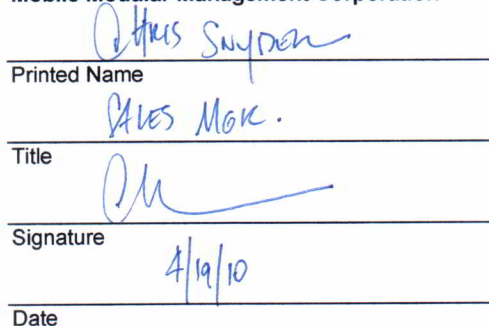 Mobile Modular Management Corporation
CHRIS SNYDER
Printed Name
SALES MGR.
Title
Signature
4/19/10
Date